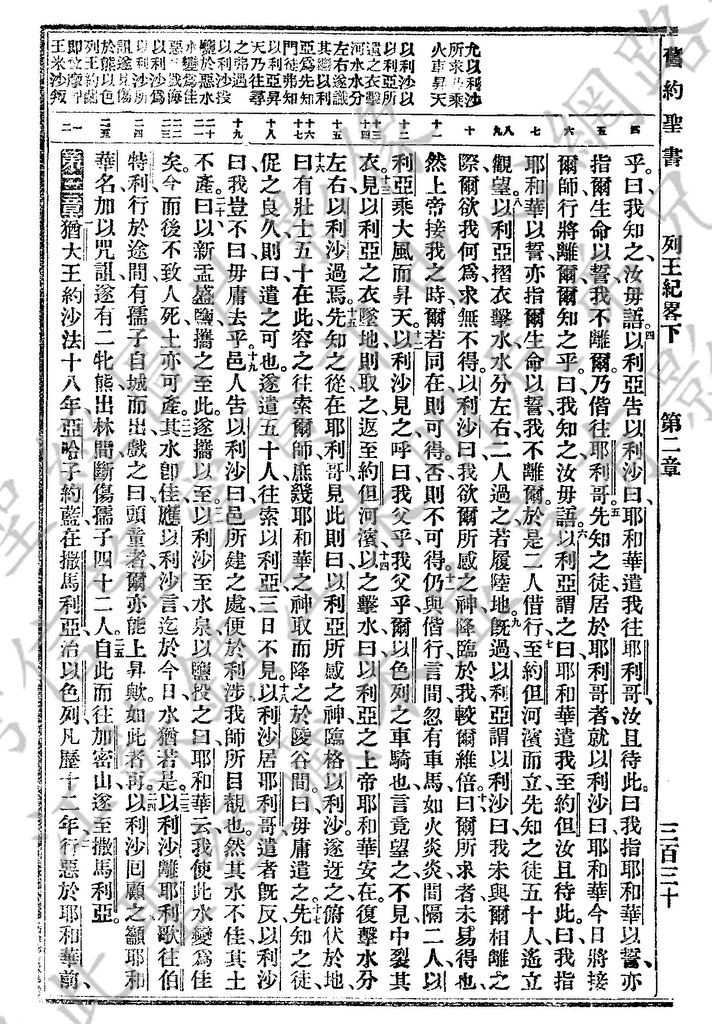 舊約聖書 列王紀畧下 第二章 三百三十
尤以利沙
所求乃乘
火車昇天
以利沙以
以利亞所
遺之衣擊
河水水分
左右遂識
其繼以利
亞為先知
門徒弗知
以利亞昇
天乃往尋
之弗遇
以利沙投
鹽於惡水
水變為佳
惡童戲侮
以利沙為
以利沙所
詛遂見傷
於熊以色
列王約藍
即位摩押
王米沙叛
四 五 六 七 八 九 十 十一 十二 十三 十四 十五 十六 十七 十八 十九 二十 二一 二二 二三 二四 二五 一 二
乎曰我知之汝毋語以利亞告以利沙曰耶和華遣我往耶利哥汝且待此曰我指耶和華以誓亦
指爾生命以誓我不離爾乃偕往耶利哥先知之徒居於耶利哥者就以利沙曰耶和華今日將接
爾師行將離爾爾知之乎曰我知之汝毋語以利亞謂之曰耶和華遣我至約但汝且待此曰我指
耶和華以誓亦指爾生命以誓我不離爾於是二人偕行至約但河濱而立先知之徒五十人遙立
觀望以利亞摺衣擊水水分左右二人過之若履陸地旣過以利亞謂以利沙曰我未與爾相離之
際爾欲我何為求無不得以利沙曰我欲爾所感之神降臨於我較爾維倍曰爾所求者未易得也
然上帝接我之時爾若同在則可得否則不可得仍與偕行言間忽有車馬如火炎炎間隔二人以
利亞乘大風而昇天以利沙見之呼曰我父乎我父乎爾以色列之車騎也言竟望之不見中裂其
衣見以利亞之衣墜地則取之返至約但河濱以之擊水曰以利亞之上帝耶和華安在復擊水分
左右以利沙過焉先知之從在耶利哥見此則曰以利亞所感之神臨格以利沙遂迓之俯伏於地
曰有壯士五十在此容之往索爾師庶幾耶和華之神取而降之於陵谷間曰毋庸遣之先知之徒
促之良久則曰遣之可也遂遣五十人往索以利亞三日不見以利沙居耶利哥遣者旣反以利沙
曰我豈不曰毋庸去乎邑人告以利沙曰邑所建之處便於利涉我師所目覩也然其水不佳其土
不產曰以新盂盛鹽攜之至此遂攜以至以利沙至水泉以鹽投之曰耶和華云我使此水變為佳
矣今而後不致人死土亦可產其水卽佳應以利沙言迄於今日水猶若是以利沙離耶利歌往伯
特利行於途間有孺子自城而出戲之曰頭童者爾亦能上昇歟如此者再以利沙回顧之籲耶和
華名加以咒詛遂有二牝熊出林間斷傷孺子四十二人自此而往加密山遂至撒馬利亞
第三章猶大王約沙法十八年亞哈子約藍在撒馬利亞治以色列凡歷十二年行惡於耶和華前